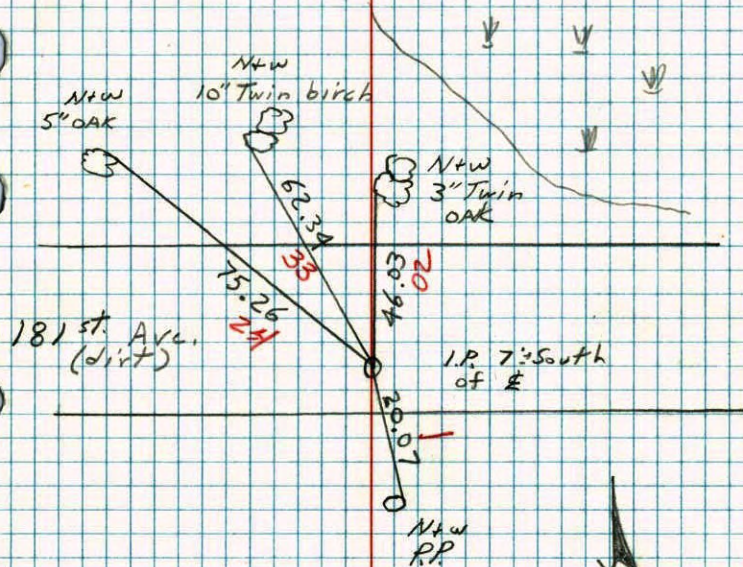 N+W
10" Twin birch
N+W
5" OAK
N+W
3" Twin
OAK
62.34
33
46.03
02
75.26
24
181 st. Ave.
(dirt)
I.P. 7'± South
of ℄
20.07
N+W
P.P.